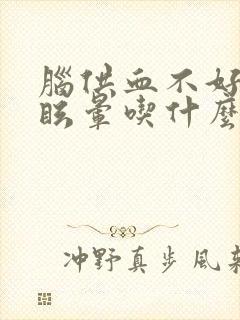 腦供血不好
眩暈喫什麼
冲野真步風